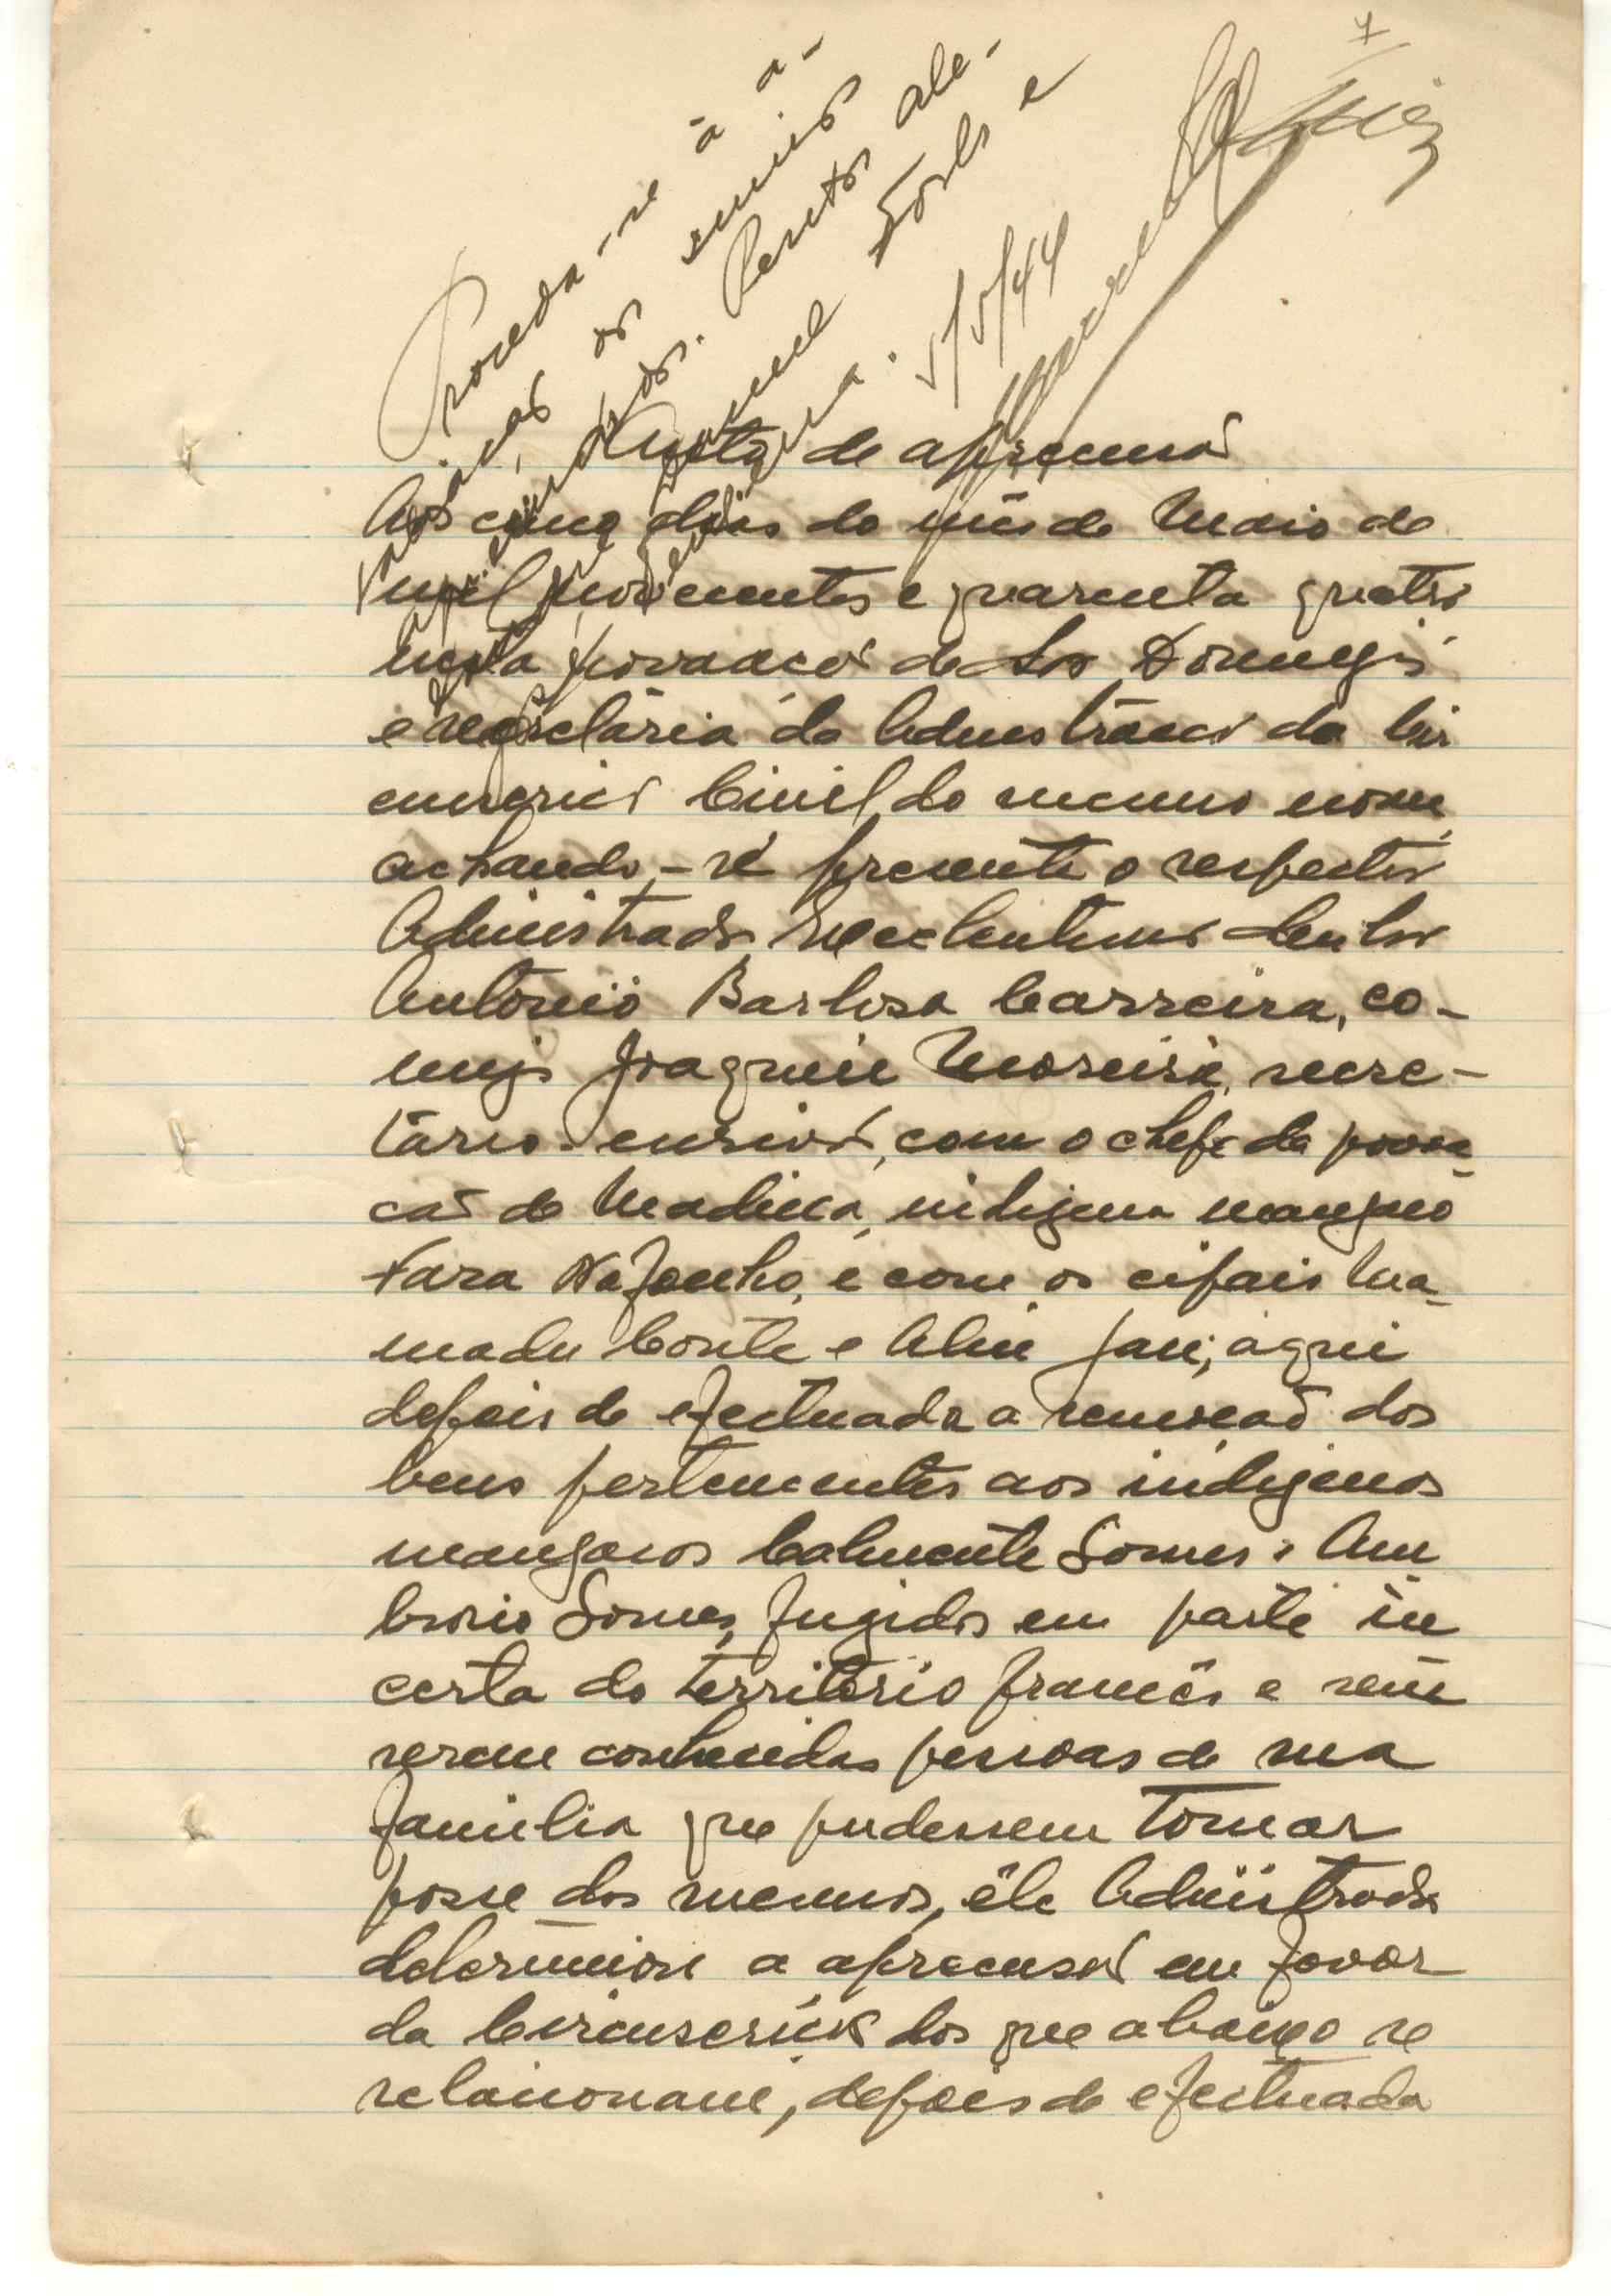 7
Proceda-se à a-
valiação dos semoventes
apreendidos. Peritos ale-
5/5/44
Auto de apreensão
Aos cinco dias do mês de Maio de
mil novecentos e quarenta quatro
nesta povoação de São Domingos
e secretária da Administração da Cir
cunscrição Civil do mesmo nome,
achando-se presente o respectivo
Administrador Excelentíssimo Senhor
António Barbosa Carreira, co-
migo Joaquim Moreira, secre-
tário escrivão, com o chefe da povoa-
ção de Madina, indigena manjaco
e com os cipais Ma-
madu Conté e Aliu Jau, aqui
depois de efectuada a remoção dos
bens pertencentes aos indigenas
manjacos Calmente Gomes e Am
brosio Gomes, fugidos em parte in
certa do território francês e sem
serem conhecidas pessoas de sua
familia que pudessem tomar
posse dos mesmos, êle Administrador
determinou a apreensão em favor
da Circunscrição dos que abaixo se
relacionam, depois de efectuada